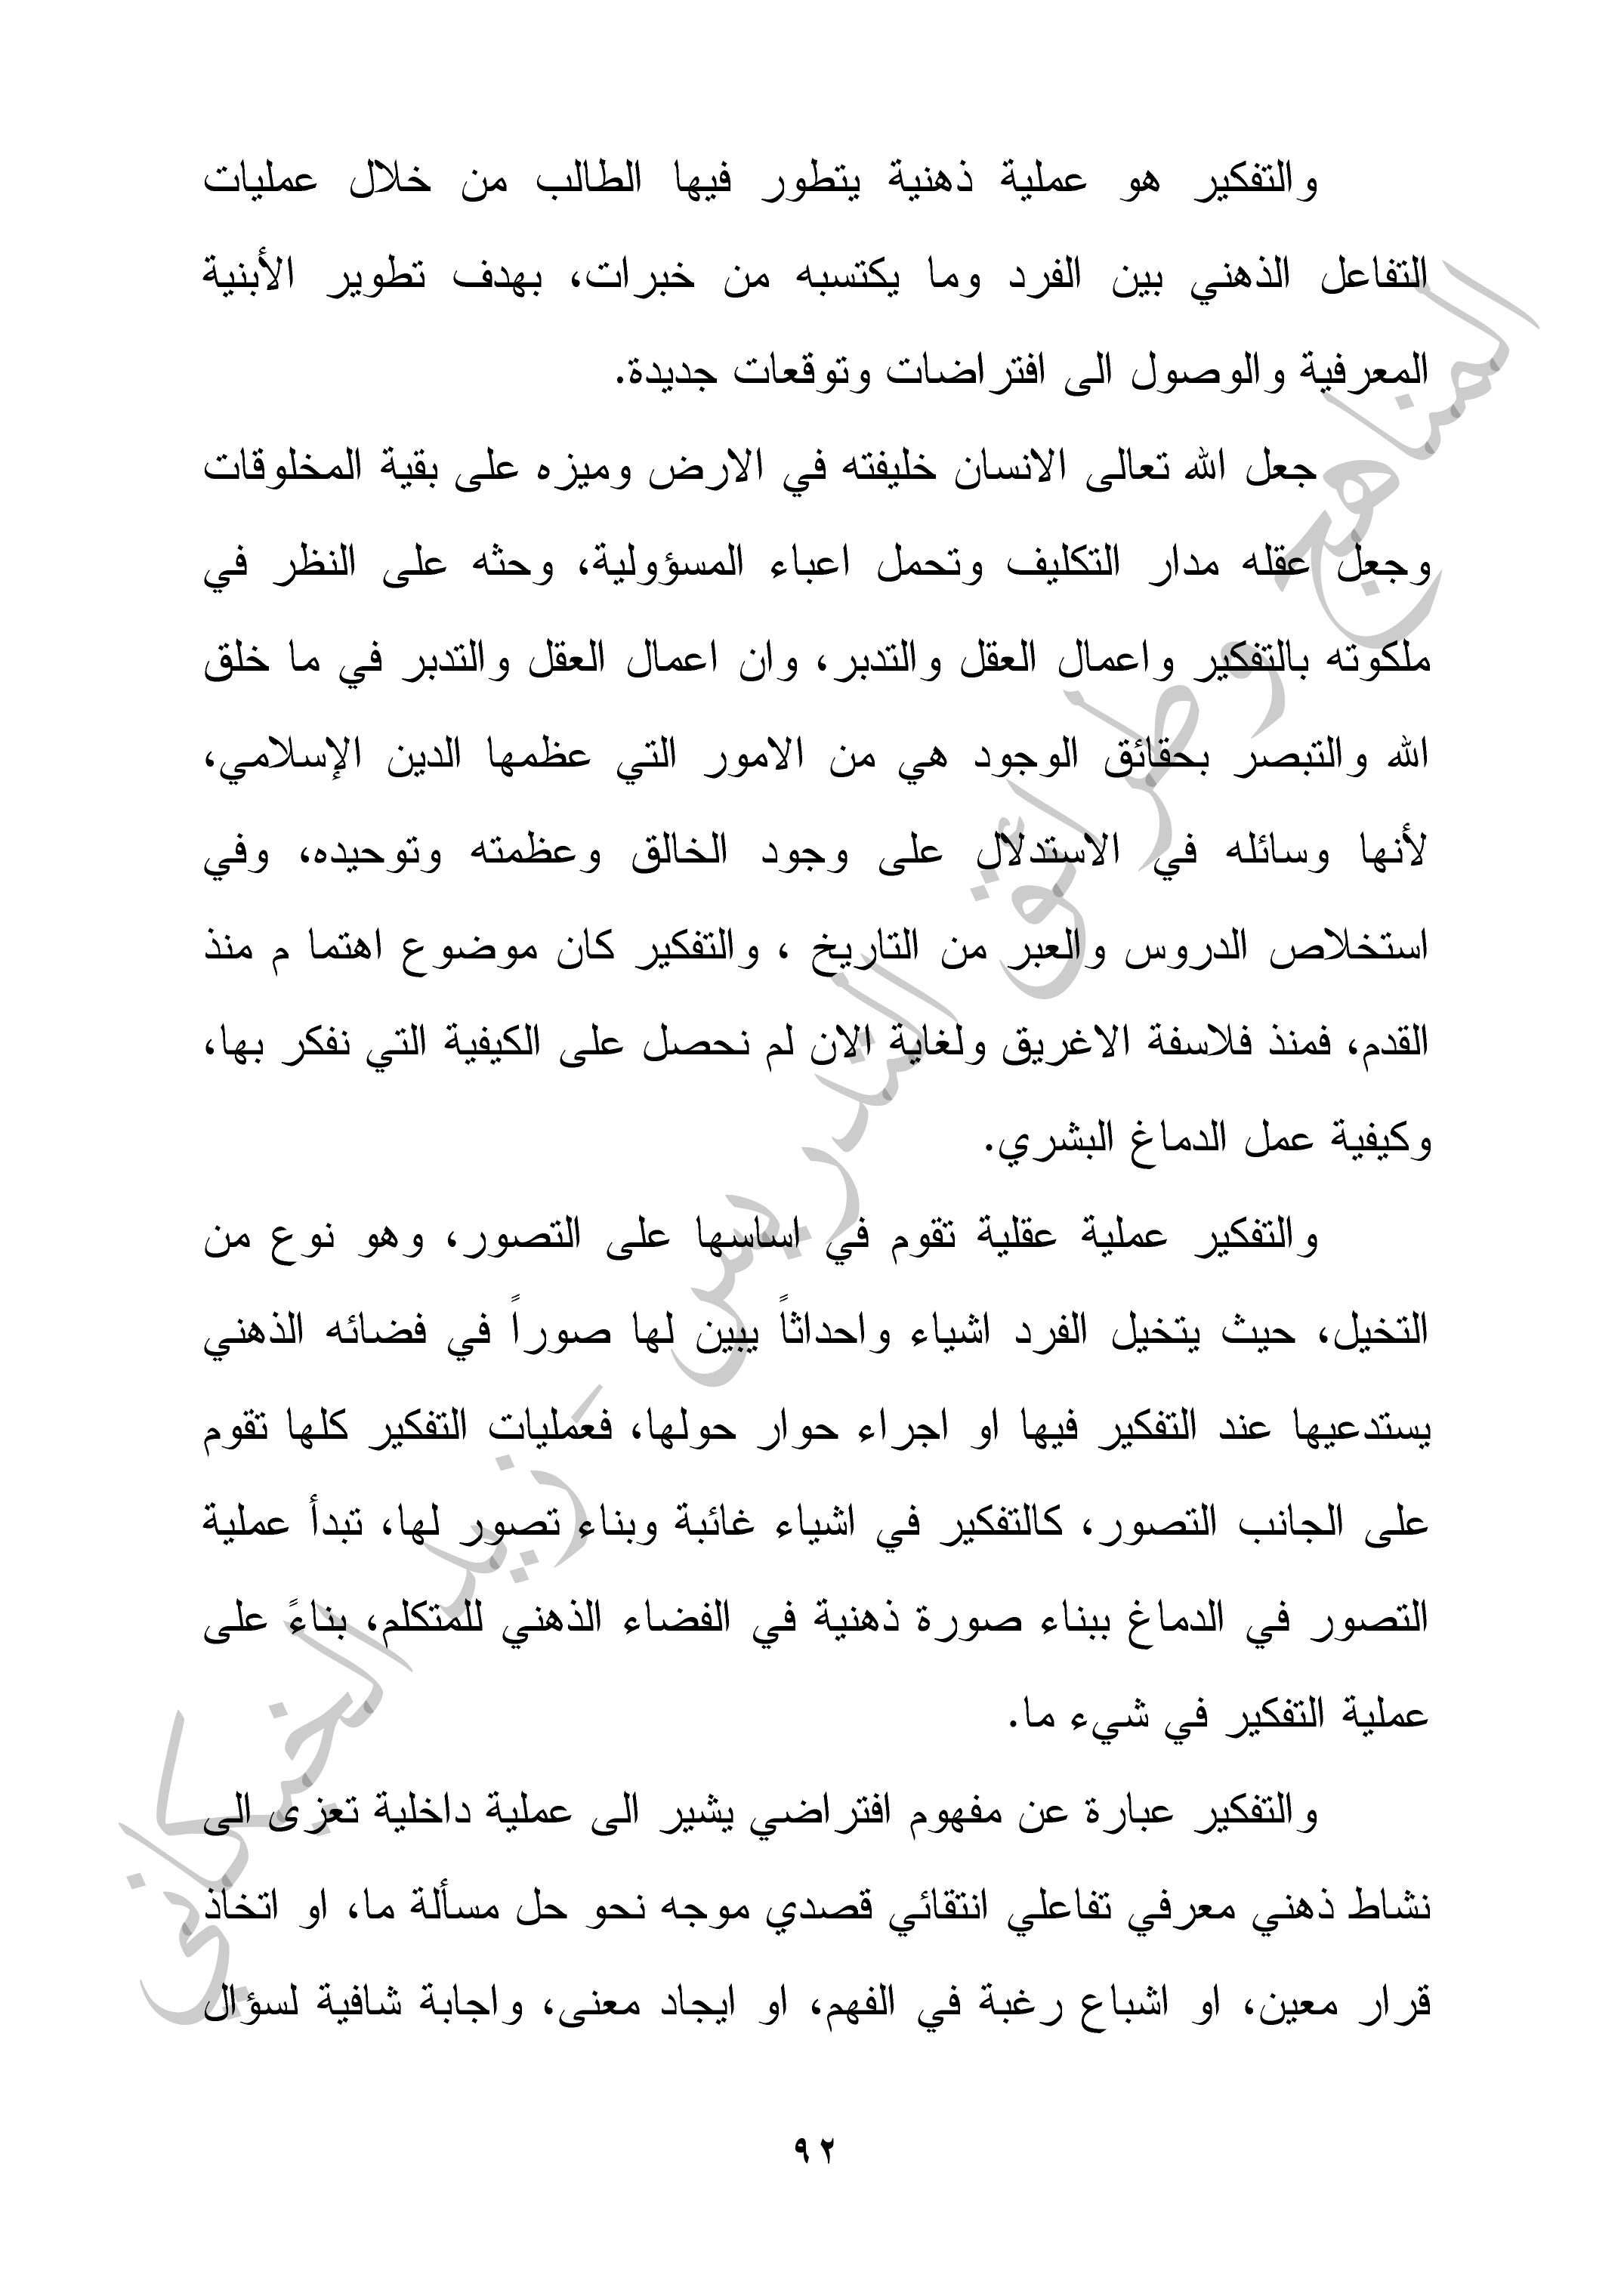 والتفكير هو عملية ذهنية يتطور فيها الطالب من خلال عمليات
التفاعل الذهني بين الفرد وما يكتسبه من خبرات، بهدف تطوير الأبنية
المعرفية والوصول الى افتراضات وتوقعات جديدة.
جعل الله تعالى الانسان خليفته في الارض وميزه على بقية المخلوقات
وجعل عقله مدار التكليف وتحمل اعباء المسؤولية، وحثه على النظر في
ملكوته بالتفكير واعمال العقل والتدبر، وان اعمال العقل والتدبر في ما خلق
الله والتبصر بحقائق الوجود هي من الامور التي عظمها الدين الإسلامي،
لأنها وسائله في الاستدلال على وجود الخالق وعظمته وتوحيده، وفي
استخلاص الدروس والعبر من التاريخ ، والتفكير كان موضوع اهتما م منذ
القدم، فمنذ فلاسفة الاغريق ولغاية الان لم نحصل على الكيفية التي نفكر بها،
وكيفية عمل الدماغ البشري.
والتفكير عملية عقلية تقوم في اساسها على التصور، وهو نوع من
التخيل، حيث يتخيل الفرد اشياء واحداثاً يبين لها صوراً في فضائه الذهني
يستدعيها عند التفكير فيها او اجراء حوار حولها، فعمليات التفكير كلها تقوم
على الجانب التصور، كالتفكير في اشياء غائبة وبناء تصور لها، تبدأ عملية
التصور في الدماغ ببناء صورة ذهنية في الفضاء الذهني للمتكلم، بناءً على
عملية التفكير في شيء ما.
والتفكير عبارة عن مفهوم افتراضي يشير الى عملية داخلية تعزى الى
نشاط ذهني معرفي تفاعلي انتقائي قصدي موجه نحو حل مسألة ما، او اتخاذ
قرار معين، او اشباع رغبة في الفهم، او ايجاد معنى، واجابة شافية لسؤال
٩٢
المناهج وطرائق التدريس - زيد الخيكاني